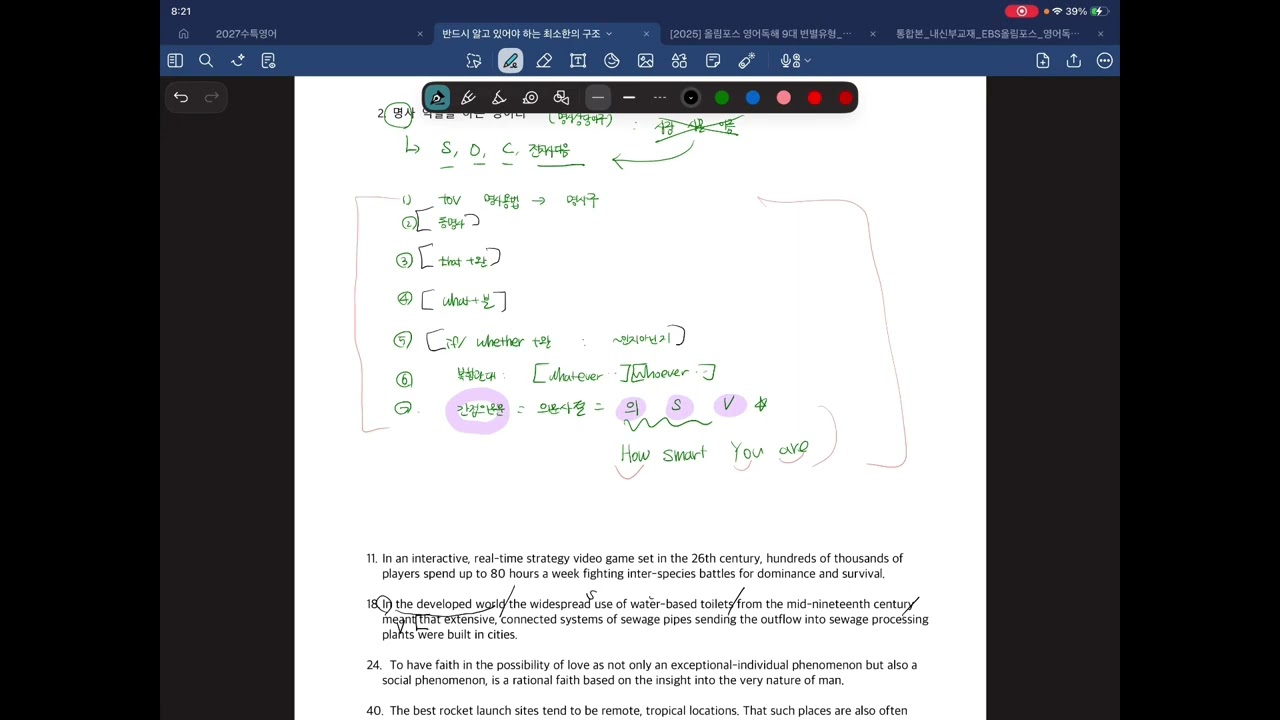 8:21
39%
2027수특영어
반드시 알고 있어야 하는 최소한의 구조
[2025] 올림포스 영어독해 9대 변별유형_…
통합본_내신부교재_EBS올림포스_영어독…
2. 명사
(명사상당어구) :
S, O, C, 전치사다음
1) toV 명사용법 → 명사구
② [동명사]
③ [that +완]
④ [what+불]
⑤ [if/ whether +완 : ~인지아닌지]
⑥ 복합관대 : [whatever …] [whoever …]
간접의문문 = 의문사절 = 의 S V
How smart You are
11. In an interactive, real-time strategy video game set in the 26th century, hundreds of thousands of
players spend up to 80 hours a week fighting inter-species battles for dominance and survival.
18. In the developed world the widespread use of water-based toilets from the mid-nineteenth century
S
meant that extensive, connected systems of sewage pipes sending the outflow into sewage processing
V
plants were built in cities.
24. To have faith in the possibility of love as not only an exceptional-individual phenomenon but also a
social phenomenon, is a rational faith based on the insight into the very nature of man.
40. The best rocket launch sites tend to be remote, tropical locations. That such places are also often